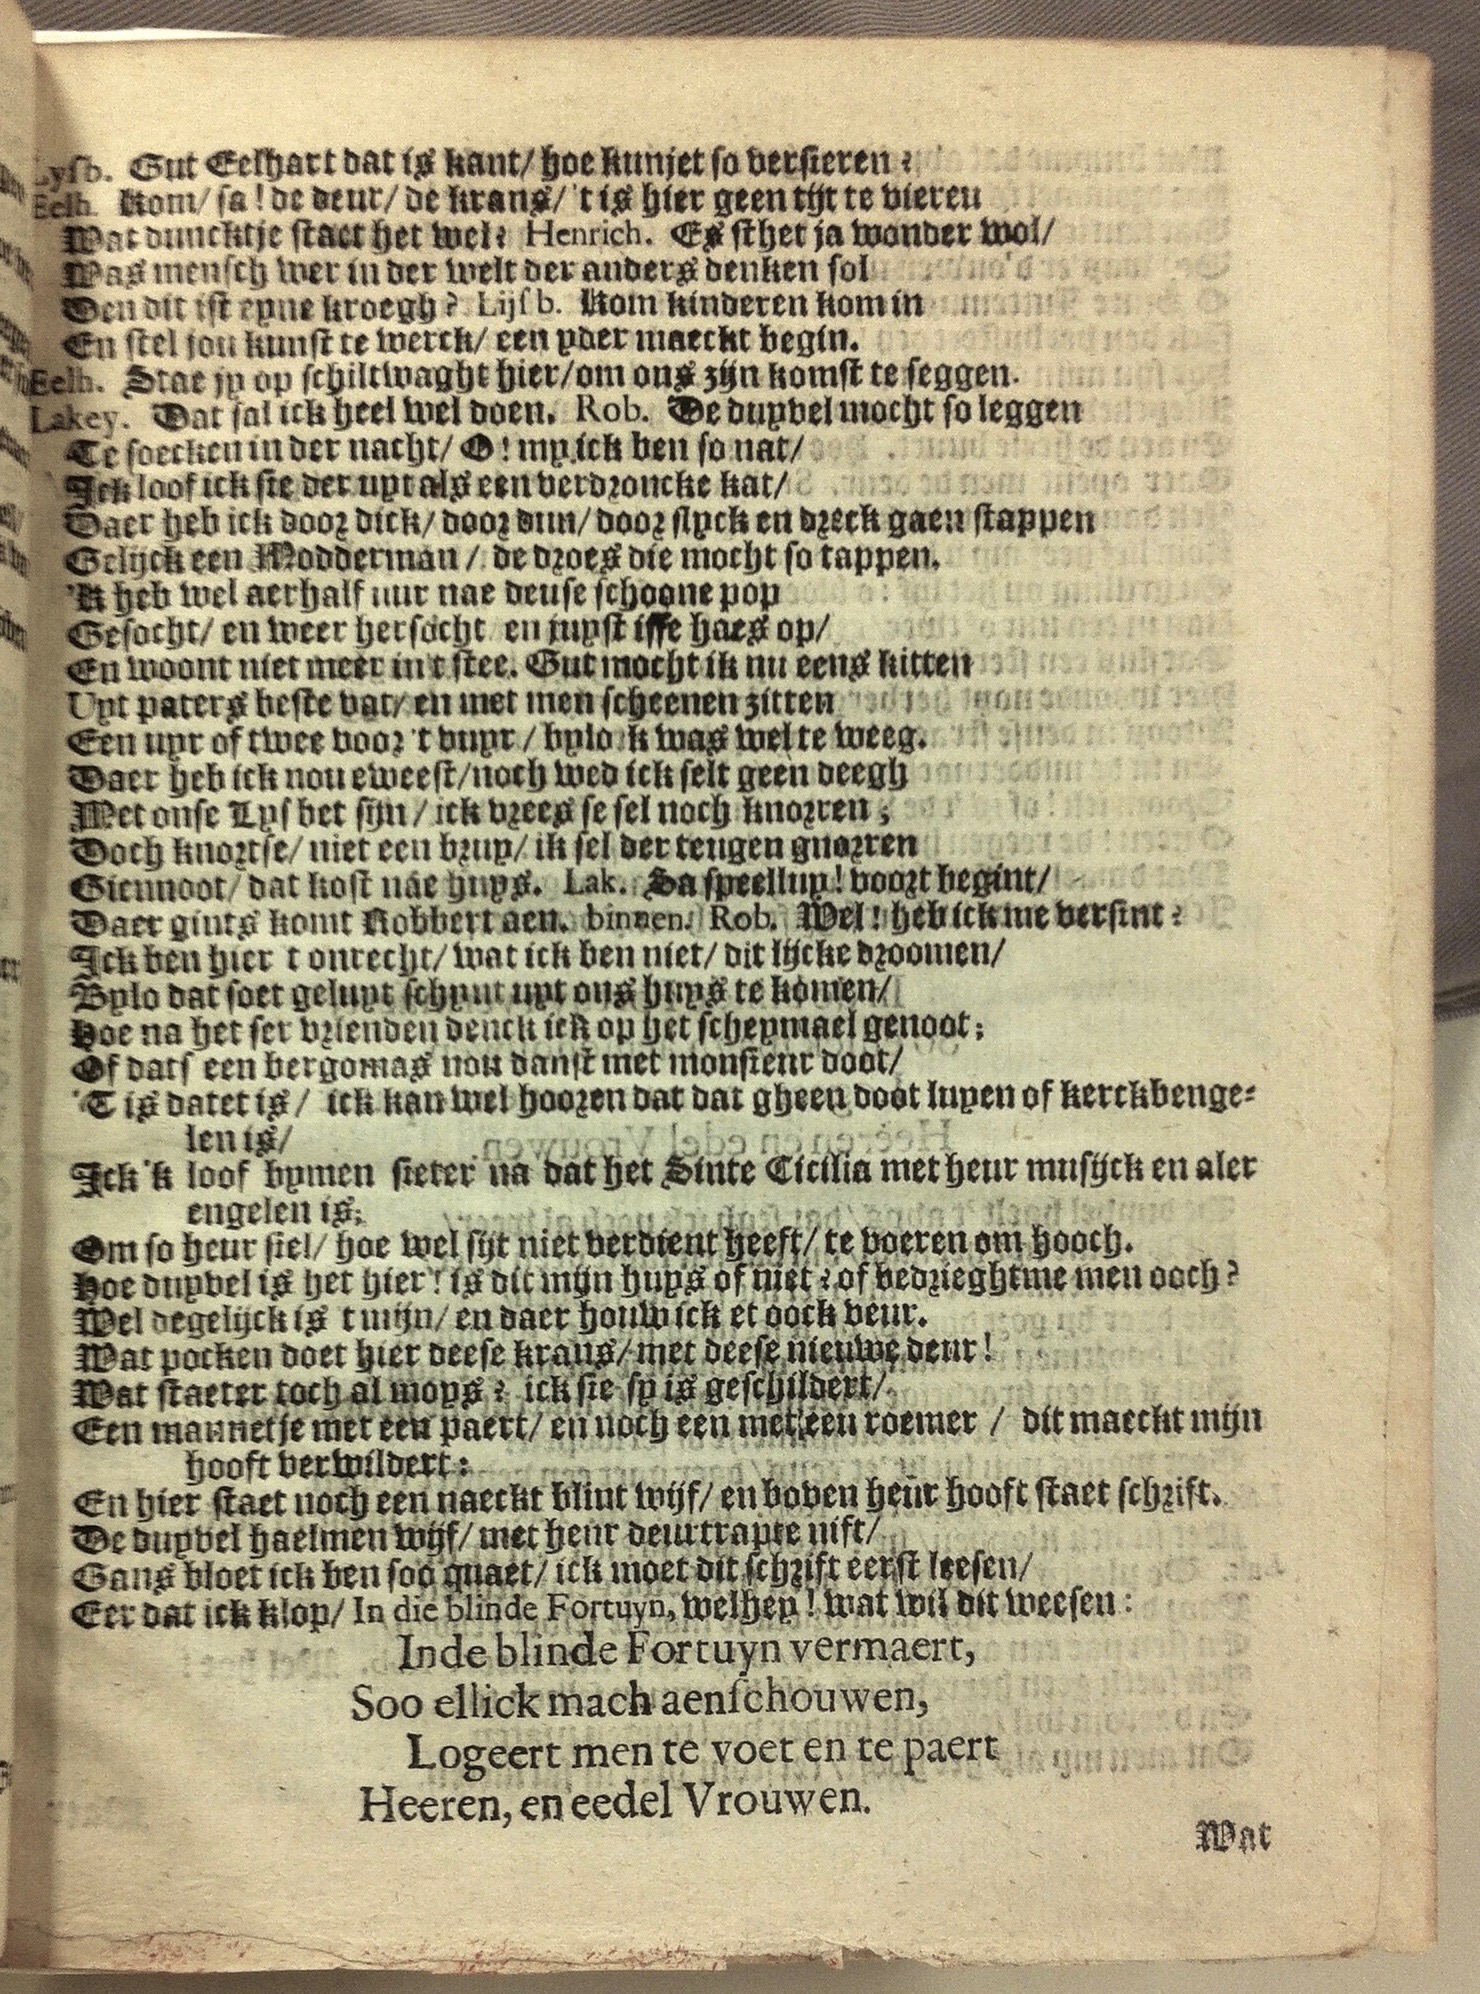 Lysb. Gut Eelhart dat is kant/ hoe kunjet so versieren?
Eelh. Kom/ sa! de deur/ de krans/ 't is hier geen tijt te vieren
Wat duncktje staet het wel? Henrich. Es sthet ja wonder wol/
Was mensch wer in der welt der anders denken sol
Den dit ist eyne kroegh? Lijsb. Kom kinderen kom in
En stel jou kunst te werck/ een yder maeckt begin.
Eelh. Stae jy op schiltwaght hier/ om ons zijn komst te seggen.
Lakey. Dat sal ick heel wel doen. Rob. De duyvel mocht so leggen
Te soecken in der nacht/ O! my ick ben so nat/
Ick loof ick sie der uyt als een verdroncke kat/
Daer heb ick door dick/ door dun/ door slyck en dreck gaen stappen
Gelijck een Modderman/ de droes die mocht so tappen.
'K heb wel aerhalf uur nae deuse schoone pop
Gesocht/ en weer hersocht en juyst isse haes op/
En woont niet meer in t stee. Gut mocht ik nu eens kitten
Uyt paters beste vat/ en met men scheenen zitten
Een uyr of twee voor 't vuyr/ bylo k was wel te weeg.
Daer heb ick nou eweest/ noch wed ick selt geen deegh
Met onse Lysbet sijn/ ick vrees se sel noch knorren;
Doch knortse/ niet een bruy/ ik sel der teugen gnorren
Siennoot/ dat kost nae huys. Lak. Sa speelluy! voort begint/
Daer gints komt Robbert aen. binnen. Rob. Wel! heb ick me versint?
Ick ben hier t onrecht/ wat ick ben niet/ dit lijcke droomen/
Bylo dat soet geluyt schynt uyt ons huys te komen/
Hoe na het ser vrienden denck ick op het scheymael genoot;
Of dats een bergomas nou danst met monsieur doot/
'T is datet is/ ick kan wel hooren dat dat gheen doot luyen of kerckbenge-
len is/
Ick 'k loof bymen sieter na dat het Sinte Cicilia met heur musijck en aler
engelen is;
Om so heur siel/ hoe wel sijt niet verdient heeft/ te voeren om hooch.
Hoe duyvel is het hier! is dit mijn huys of niet? of bedrieghtme men ooch?
Wel degelijck is t mijn/ en daer houw ick et oock veur.
Wat pocken doet hier deese krans/ met deese nieuwe deur!
Wat staeter toch al moys? ick sie sy is geschildert/
Een mannetje met een paert/ en noch een met een roemer/ dit maeckt mijn
hooft verwildert:
En hier staet noch een naeckt blint wijf/ en boven heur hooft staet schrift.
De duyvel haelmen wijf/ met heur deurtrapte nift/
Gans bloet ick ben soo quaet/ ick moet dit schrift eerst leesen/
Eer dat ick klop/ In die blinde Fortuyn, welhey! wat wil dit weesen:
Inde blinde Fortuyn vermaert,
Soo ellick mach aenschouwen,
Logeert men te voet en te paert
Heeren, en eedel Vrouwen.
Wat